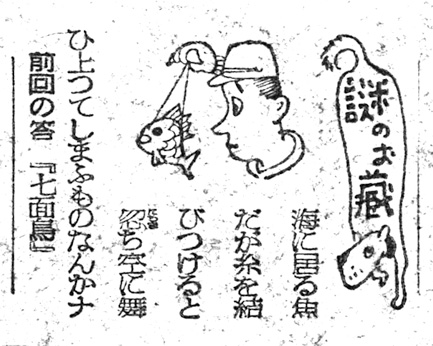 謎のお蔵
海に居る魚
だが糸を結
びつけると
忽ち空に舞
ひ上つてしまふものなんかナ
前回の答 『七面鳥』